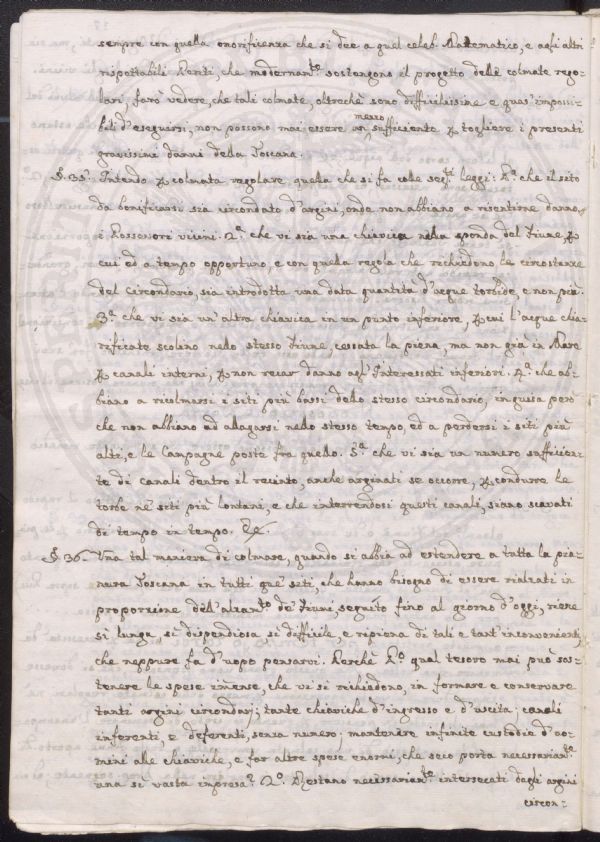 sempre con quella onorificenza che si dee a quel celeb. Mattematico, e agli altri
rispettabili Periti, che modernam.te sostengono il progetto delle colmate rego-
lari, farò vedere, che tali colmate, oltrechè sono difficilissime e quas' impossi-
bili d'eseguirsi, non possono mai essere un mezzo sufficiente p togliere i presenti
gravissimi danni della Toscana.
§. 35. Intendo p colmata regolare quella che si fa colle seg.ti leggi: P.a che il sito
da bonificarsi sia circondato d'argini, onde non abbiano a risentirne danno
i Possessori vicini. 2.a che vi sia una chiavica nella sponda del Fiume, p
cui ed a tempo opportuno, e con quella regola che richiedono le circostanze
del Circondario, sia introdotta una data quantità d'acque torbide, e non più.
3.a che vi sia un'altra chiavica in un punto inferiore, p cui l'acque chia-
rificate scolino nello stesso Fiume, cessata la piena, ma non già in Mare
p canali interni, p non recar danno agl'Interessati inferiori. 4.a che ab-
biano a ricolmarsi i siti più bassi dello stesso circondario, inguisa però
che non abbiano ad allagarsi nello stesso tempo, ed a perdersi i siti più
alti, e le Campagne poste fra quello. 5.a che vi sia un numero sufficien-
te di canali dentro il recinto, anche arginati se occorre, p condurre le
torbe ne' siti più lontani, e che interrendosi questi canali, siano scavati
di tempo in tempo. &c.
§. 36. Una tal maniera di colmare, quando si abbia ad estendere a tutta la pia-
nura Toscana in tutti que' siti, che hanno bisogno di essere rialzati in
proporzione dell'alzam.to de' Fiumi, seguito fino al giorno d'oggi, riesce
sì lunga, sì dispendiosa sì difficile, e ripiena di tali e tant'inconvenienti,
che neppure fa d'uopo pensarvi. Perchè P.o qual tesoro mai può sos-
tenere le spese imense, che vi si richiedono, in formare e conservare
tanti argini circondarj; tante chiaviche d'ingresso e d'uscita; canali
inferenti, e deferenti, senza numero; mantenere infinite custodie d'uo-
mini alle chiaviche, e far altre spese enormi, che seco porta necessariam.te
una sì vasta impresa? 2.o Restano necessariam.te intersecati dagli argini
circon-